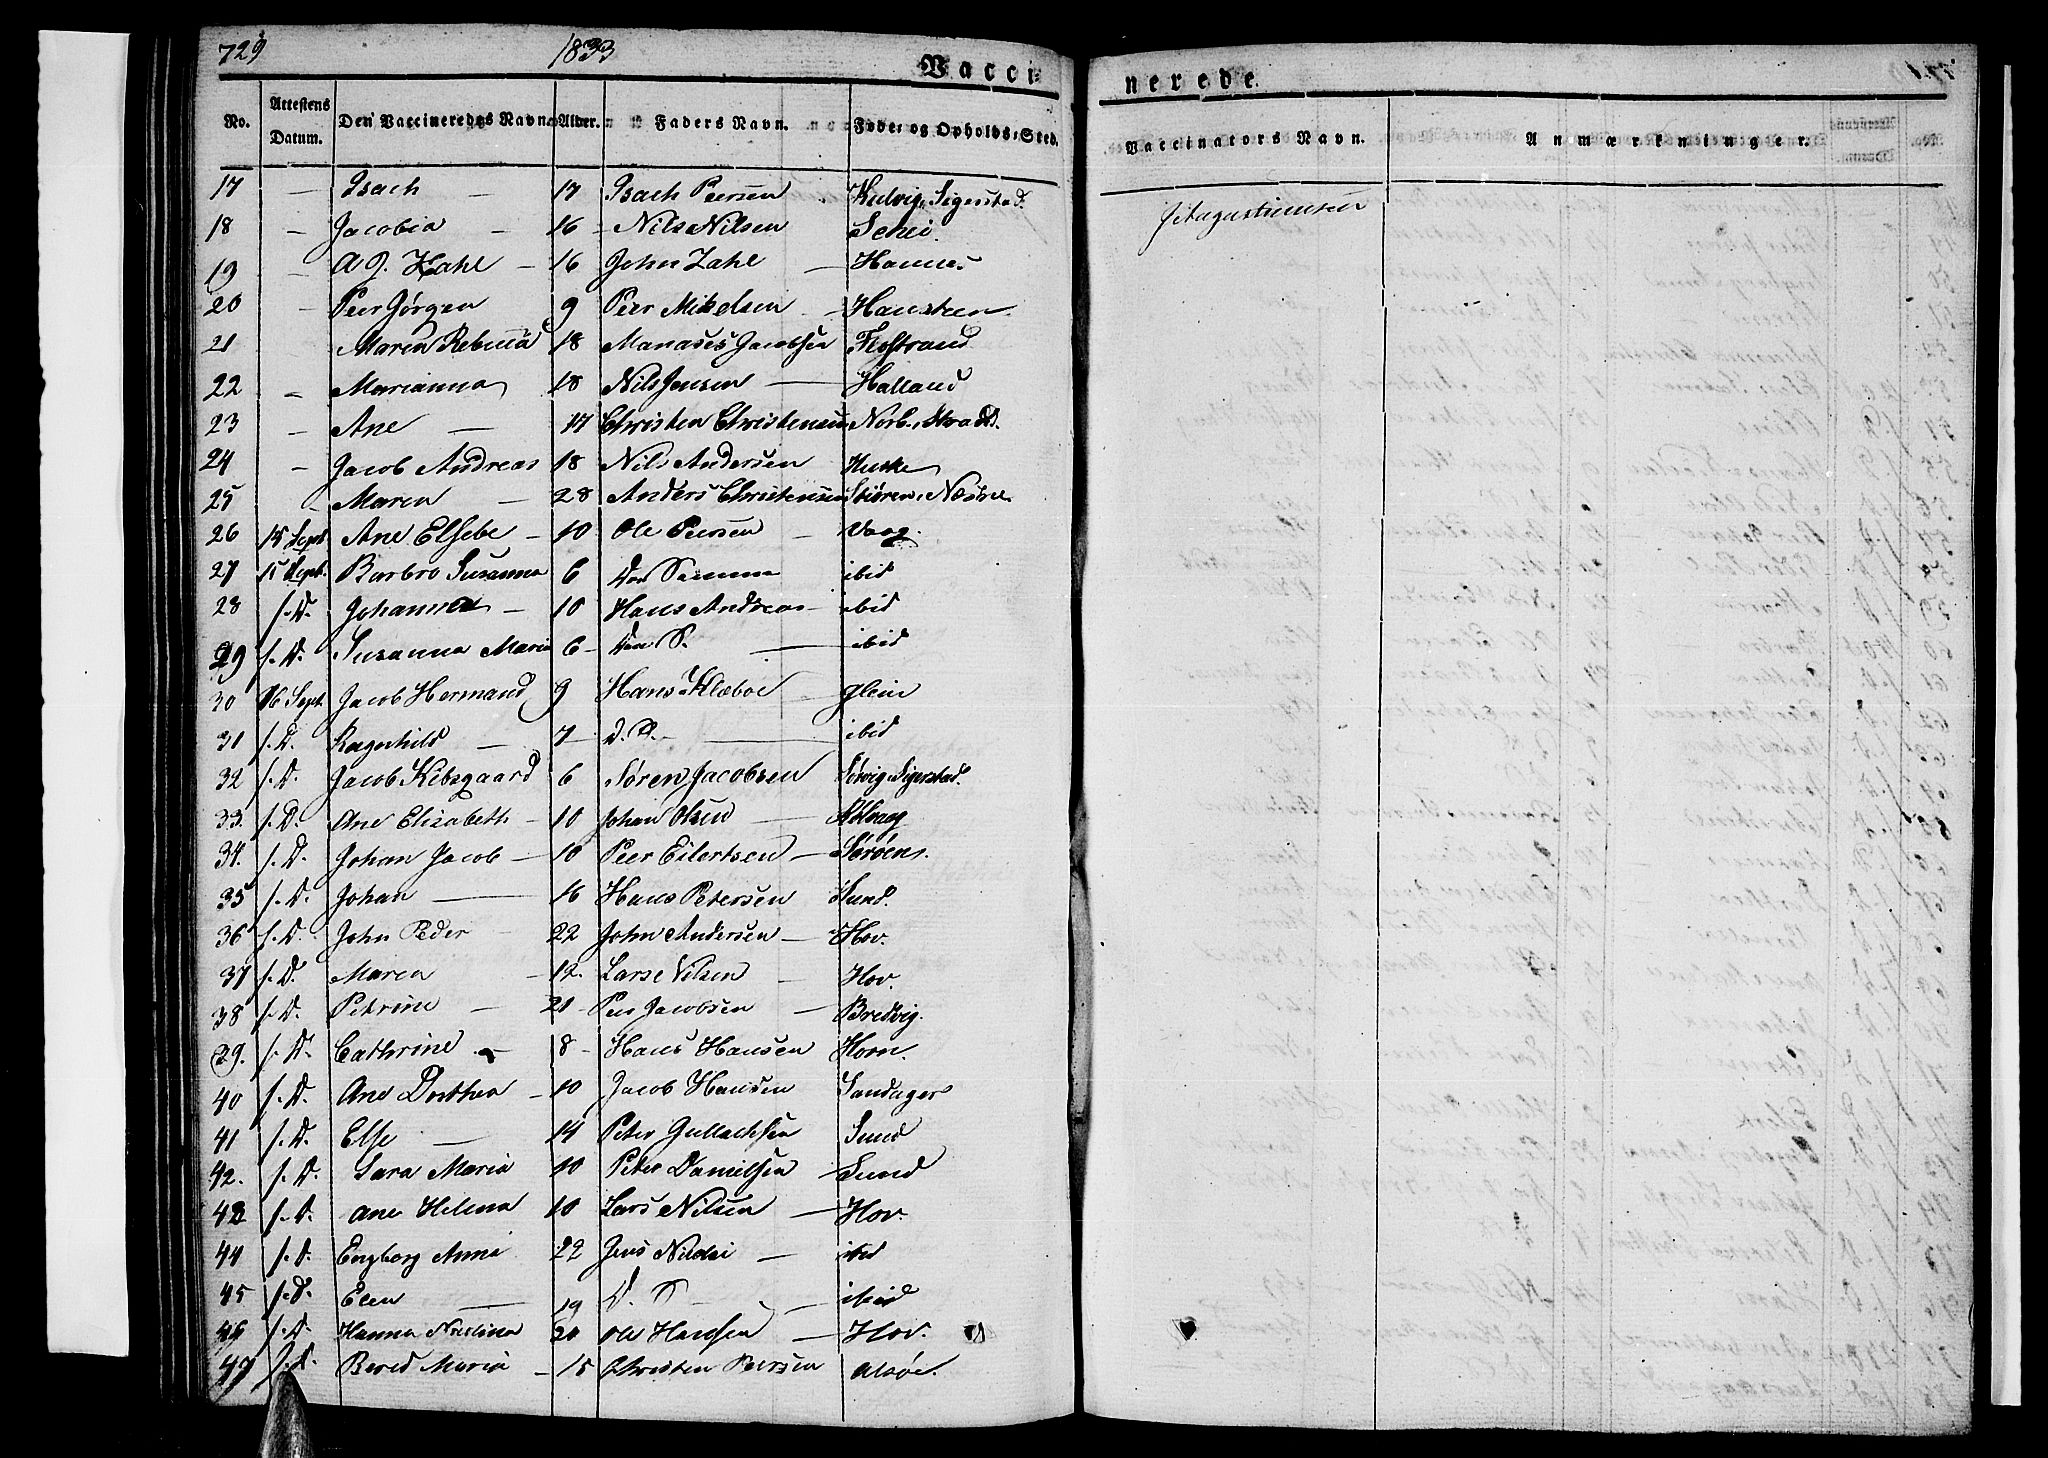 729 1833 Vacci-
nerede.
No. Attestens Datum. Den Vaccineredes Navn. Alder. Faders Navn. Føde- og Opholds-Sted.
Vaccinators Navn. Anmærkninger.
17 — Isach — 17 Isach Peersen Sigerstad
18 — Jacobia — 16 — Nils Nilsen Schei.
19 — A J. Zahl — 16 John Zahl — Hannes
20 — Peer Jørgen 9 Peer Mikelsen — Hansteen
21 Maren Rebecca 18 Manases Jacobsen Flostrand
22 — Marianna 18 Nils Jensen — Halland
23 — Ane — 17 Christen Christensen
24 — Jacob Andreas 18 Nils Andersen Huske
25 — Maren — 28 Anders Christensen
26 15 Sept Ane Elsebe — 10 Ole Peersen — Vaag.
27 15 Sept. Barbro Susanna 6 Den Samme ibid
28 s. D. Johanna — 10 Hans Andreas — ibid
29 s. D. Susanna Maria 6 — Den S. — ibid
30 16 Sept. Jacob Hermand 9 Hans Klæboe glein
31 s. D. Ragnhild — 7 — D. S. — ibid
32 s. D. Jacob Kibsgaard 6 Søren Jacobsen Sigerstad.
33. s. D. Ane Elizabeth — 10 Johan Olsen —
34. s. D. Johan Jacob — 10 Peer Eilertsen — Sørøen.
35 s. D. Johan — 16 Hans Petersen Sund.
36 s. D. John Peder — 22 John Andersen — Hov.
37 s. D. Maren — 12. Lars Nilsen — Hov.
38 s. D. Petrine — 21 — Peer Jacobsen — Bredvig.
39. s. D. Cathrine — 8 — Hans Hansen Horn.
40 s. D. Ane Dorthea — 10 Jacob Hansen Sandager
41 s. D. Else — 14 Peter Gullachsen Sund
42. s. D. Sara Maria 10 Peter Danielsen — Sund
43 s. D. Ane Helena 10 Lars Nilsen — Hov.
44 s. D. Engborg Anna 22 Jens — ibid
45 s. D. Elen — 19 D. S — — ibid
46 s. D. Hanna 20 Ole Hansen — Hov.
47 s. D. Bered Maria — 15 Christen Peersen Alsøe.